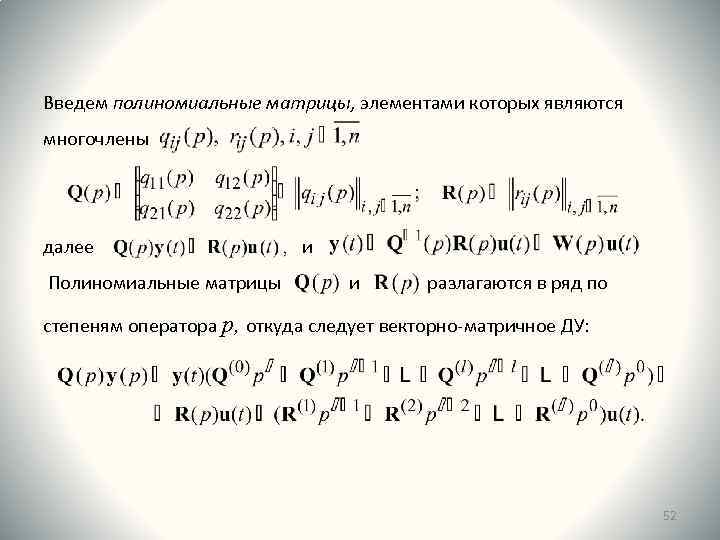 Введем полиномиальные матрицы, элементами которых являются
многочлены q_ij(p), r_ij(p), i, j ▯ 1,n
Q(p) ▯ [q11(p) q12(p); q21(p) q22(p)] ▯ ‖q_ij(p)‖_i,j▯1,n ; R(p) ▯ ‖r_ij(p)‖_i,j▯1,n
далее Q(p)y(t) ▯ R(p)u(t) , и y(t) ▯ Q^▯1(p)R(p)u(t) ▯ W(p)u(t)
Полиномиальные матрицы Q(p) и R(p) разлагаются в ряд по
степеням оператора p, откуда следует векторно-матричное ДУ:
Q(p)y(p) ▯ y(t)(Q^(0)p^▯ ▯ Q^(1)p^▯▯1 ▯ L ▯ Q^(l)p^▯▯l ▯ L ▯ Q^(▯)p^0) ▯
▯ R(p)u(t) ▯ (R^(1)p^▯▯1 ▯ R^(2)p^▯▯2 ▯ L ▯ R^(▯)p^0)u(t).
52